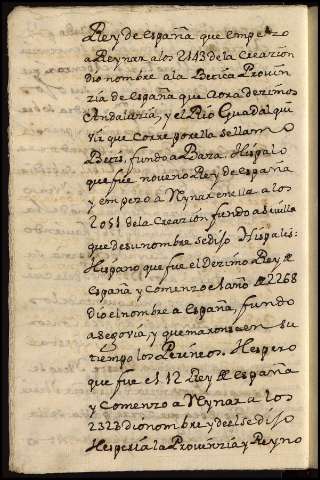 Rey de España que empezo
a Reynar a los 2143 de la Creazion
dio nombre a la Betica Provin
zia de España que aora dezimos
Andaluzia, y el Rio Guadalqui
vir que corre por ella se llamo
Betis, fundo a Baza. Hispalo
que fue noveno Rey de España
y empezo a Rynar en ella a los
2051 dela Creazion fundo a Sevilla
que de su nombre se dijo Hispalis:
Hispano que fue el Dezimo Rey de
España y Comenzo el año de 2268
dio el nombre a España, fundo
a Segovia, y quemaronse en su
tiempo los Pirineos. Hespero
que fue el 12 Rey de España
y Comenzo a Rynar a los
2323 dio nombre y de el se dijo
Hesperia la Provinzia y Reyno